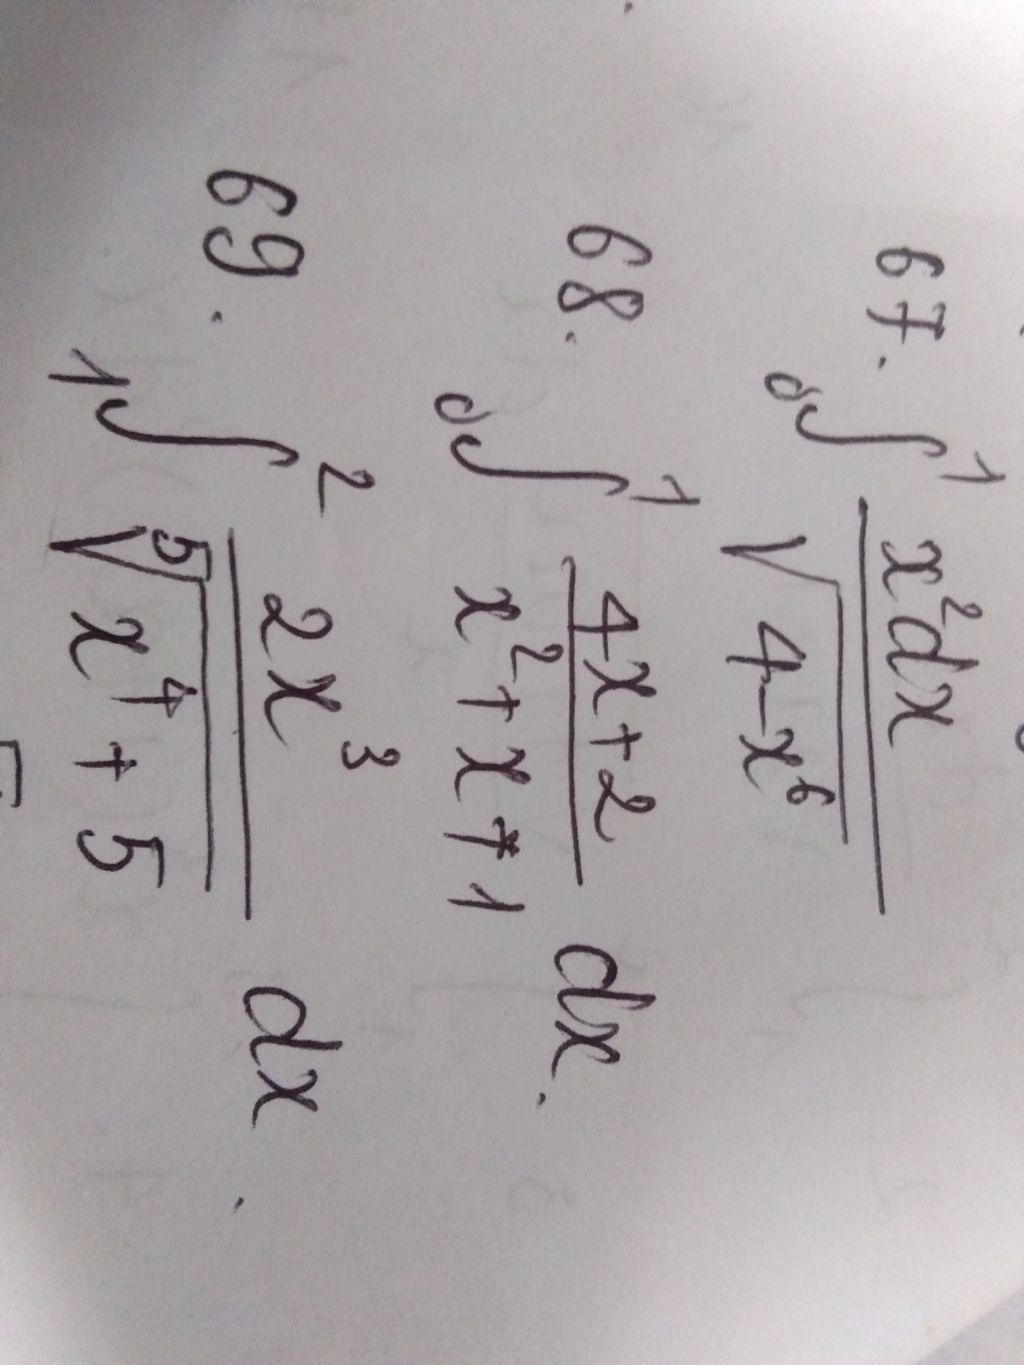 67. ₀∫¹ x²dx / √(4-x⁶)
68. ₀∫¹ (4x+2) / (x²+x+1) dx.
69. ₁∫² 2x³ / ⁵√(x⁴+5) dx.